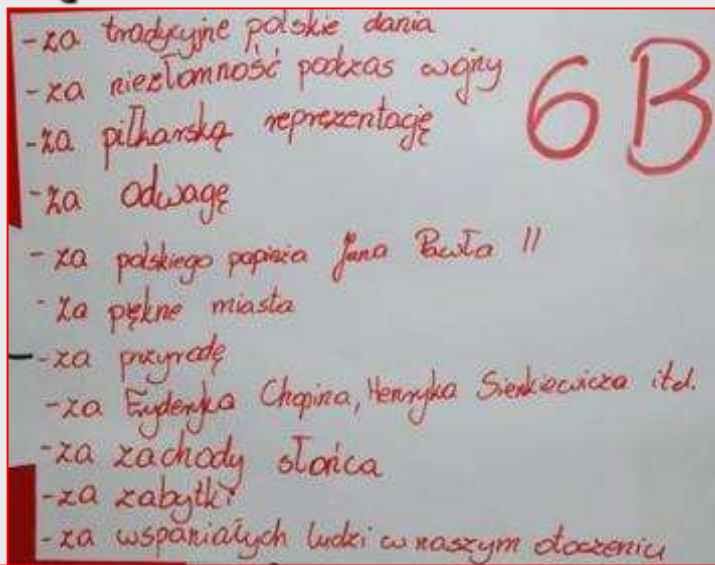 -za tradycyjne polskie dania
-za niezłomność podczas wojny
6B
-za piłkarską reprezentację
-za odwagę
-za polskiego papieża Jana Pawła II
-za piękne miasta
-za przyrodę
-za Fryderyka Chopina, Henryka Sienkiewicza itd.
-za zachody słońca
-za zabytki
-za wspaniałych ludzi w naszym otoczeniu